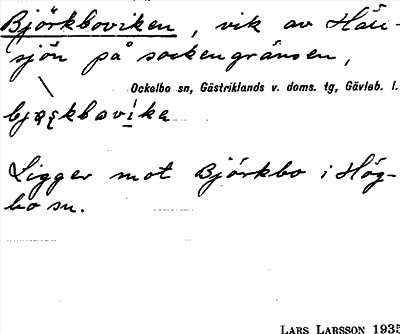 Björkboviken, vik av Håll-
sjön på sockengränsen,
Ockelbo sn, Gästriklands v. doms. tg, Gävleb. l.
Ligger mot Björkbo i Hög-
bo sn.
LARS LARSSON 1935